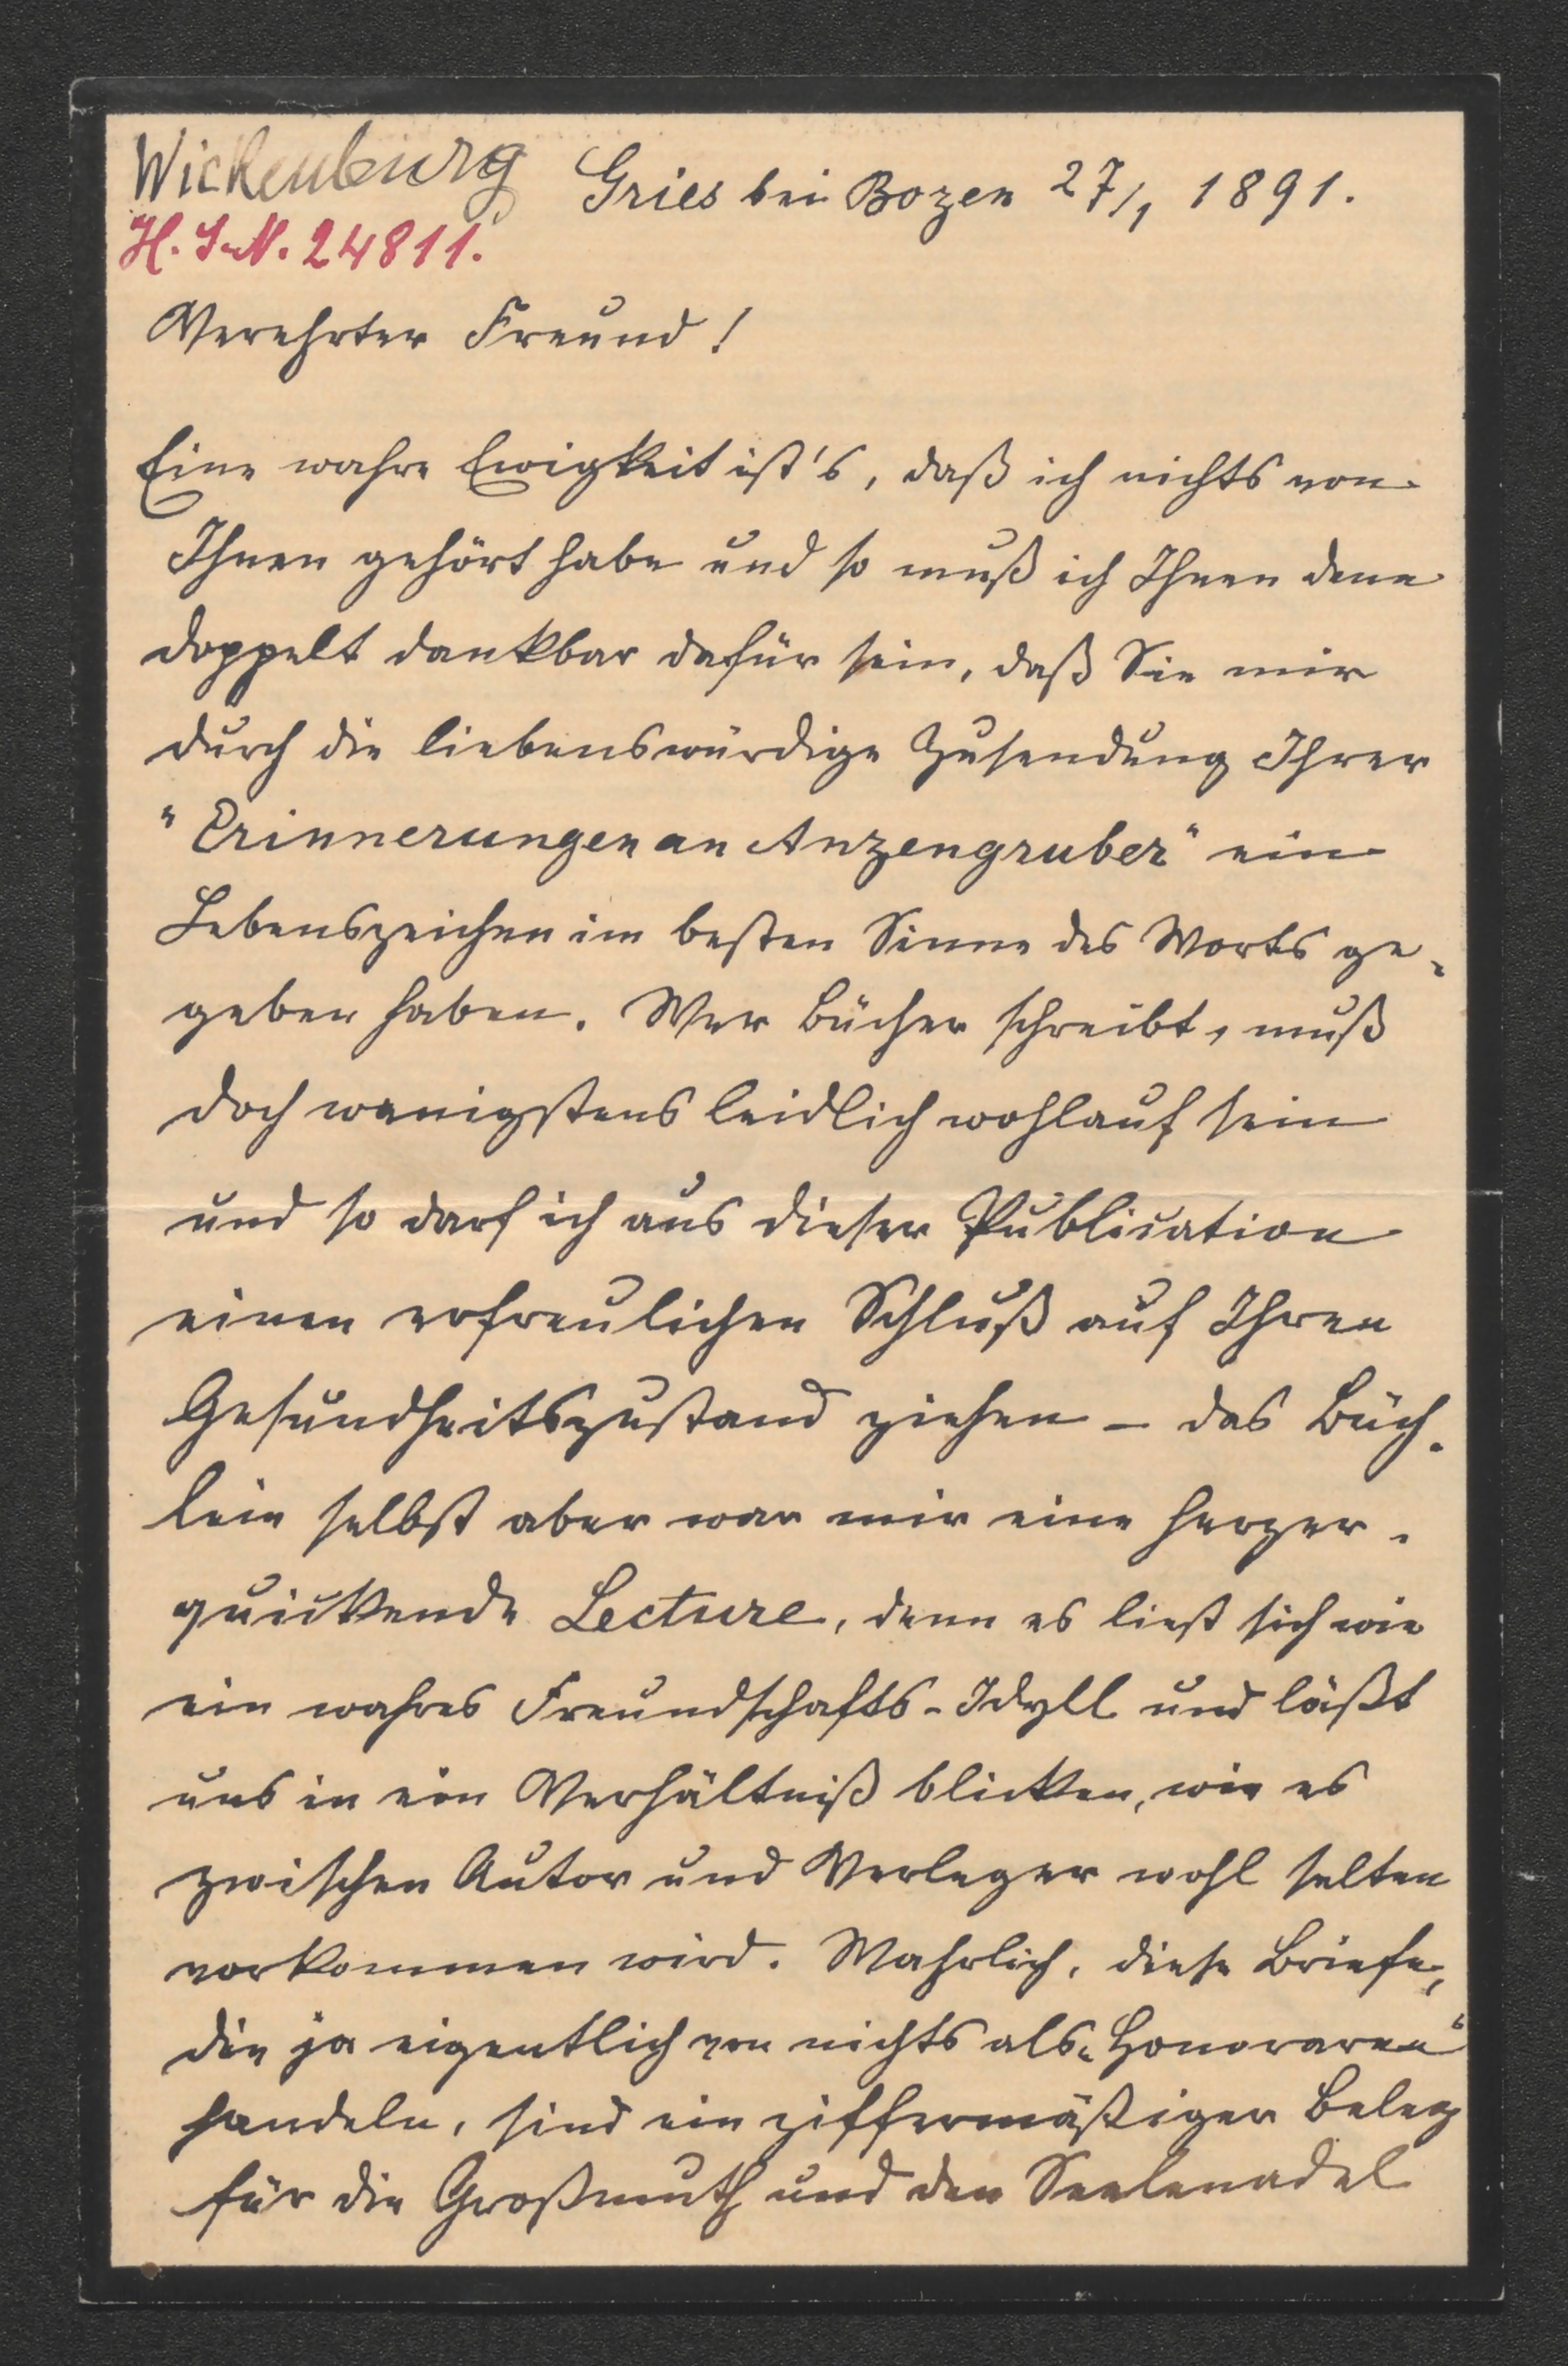 Wickenburg
Gries bei Bozen 27/1 1891.
H. I. N. 24811.
Verehrter Freund!
Eine wahre Ewigkeit ist's, daß ich nichts von
Ihnen gehört habe und so muß ich Ihnen denn
doppelt dankbar dafür sein, daß Sie mir
durch die liebenswürdige Zusendung Ihrer
"Erinnerungen an Anzengruber" ein
Lebenszeichen im besten Sinne des Worts ge-
geben haben. Wer Bücher schreibt, muß
doch wenigstens leidlich wohlauf sein
und so darf ich aus dieser Publication
einen erfreulichen Schluß auf Ihren
Gesundheitszustand ziehen – das Büch-
lein selbst aber war mir eine herzer-
quickende Lecture, denn es liest sich wie
ein wahres Freundschafts-Idyll und läßt
uns in ein Verhältniß blicken, wie es
zwischen Autor und Verleger wohl selten
vorkommen wird. Wahrlich, diese Briefe,
die ja eigentlich von nichts als „Honoraren"
handeln, sind ein ziffermäßiger Beleg
für die Großmuth und den Seelenadel